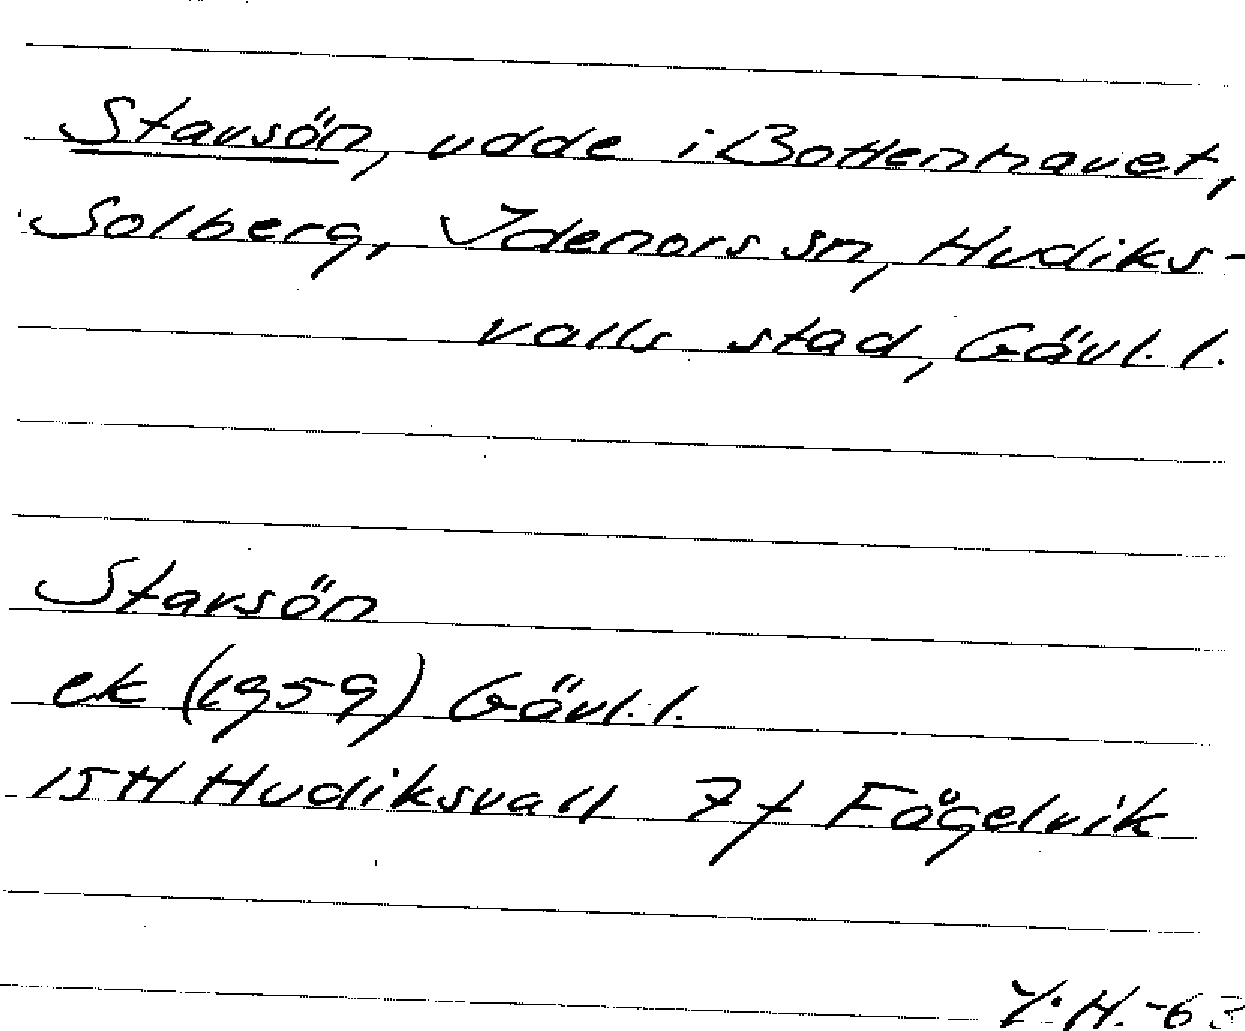 Stavsön, udde i Bottenhavet,
Solberg, Idenors sn, Hudiks-
valls stad, Gävl. l.
Stavsön
ek (1959) Gävl. l.
15H Hudiksvall 7f Fågelvik
Y.H. -63